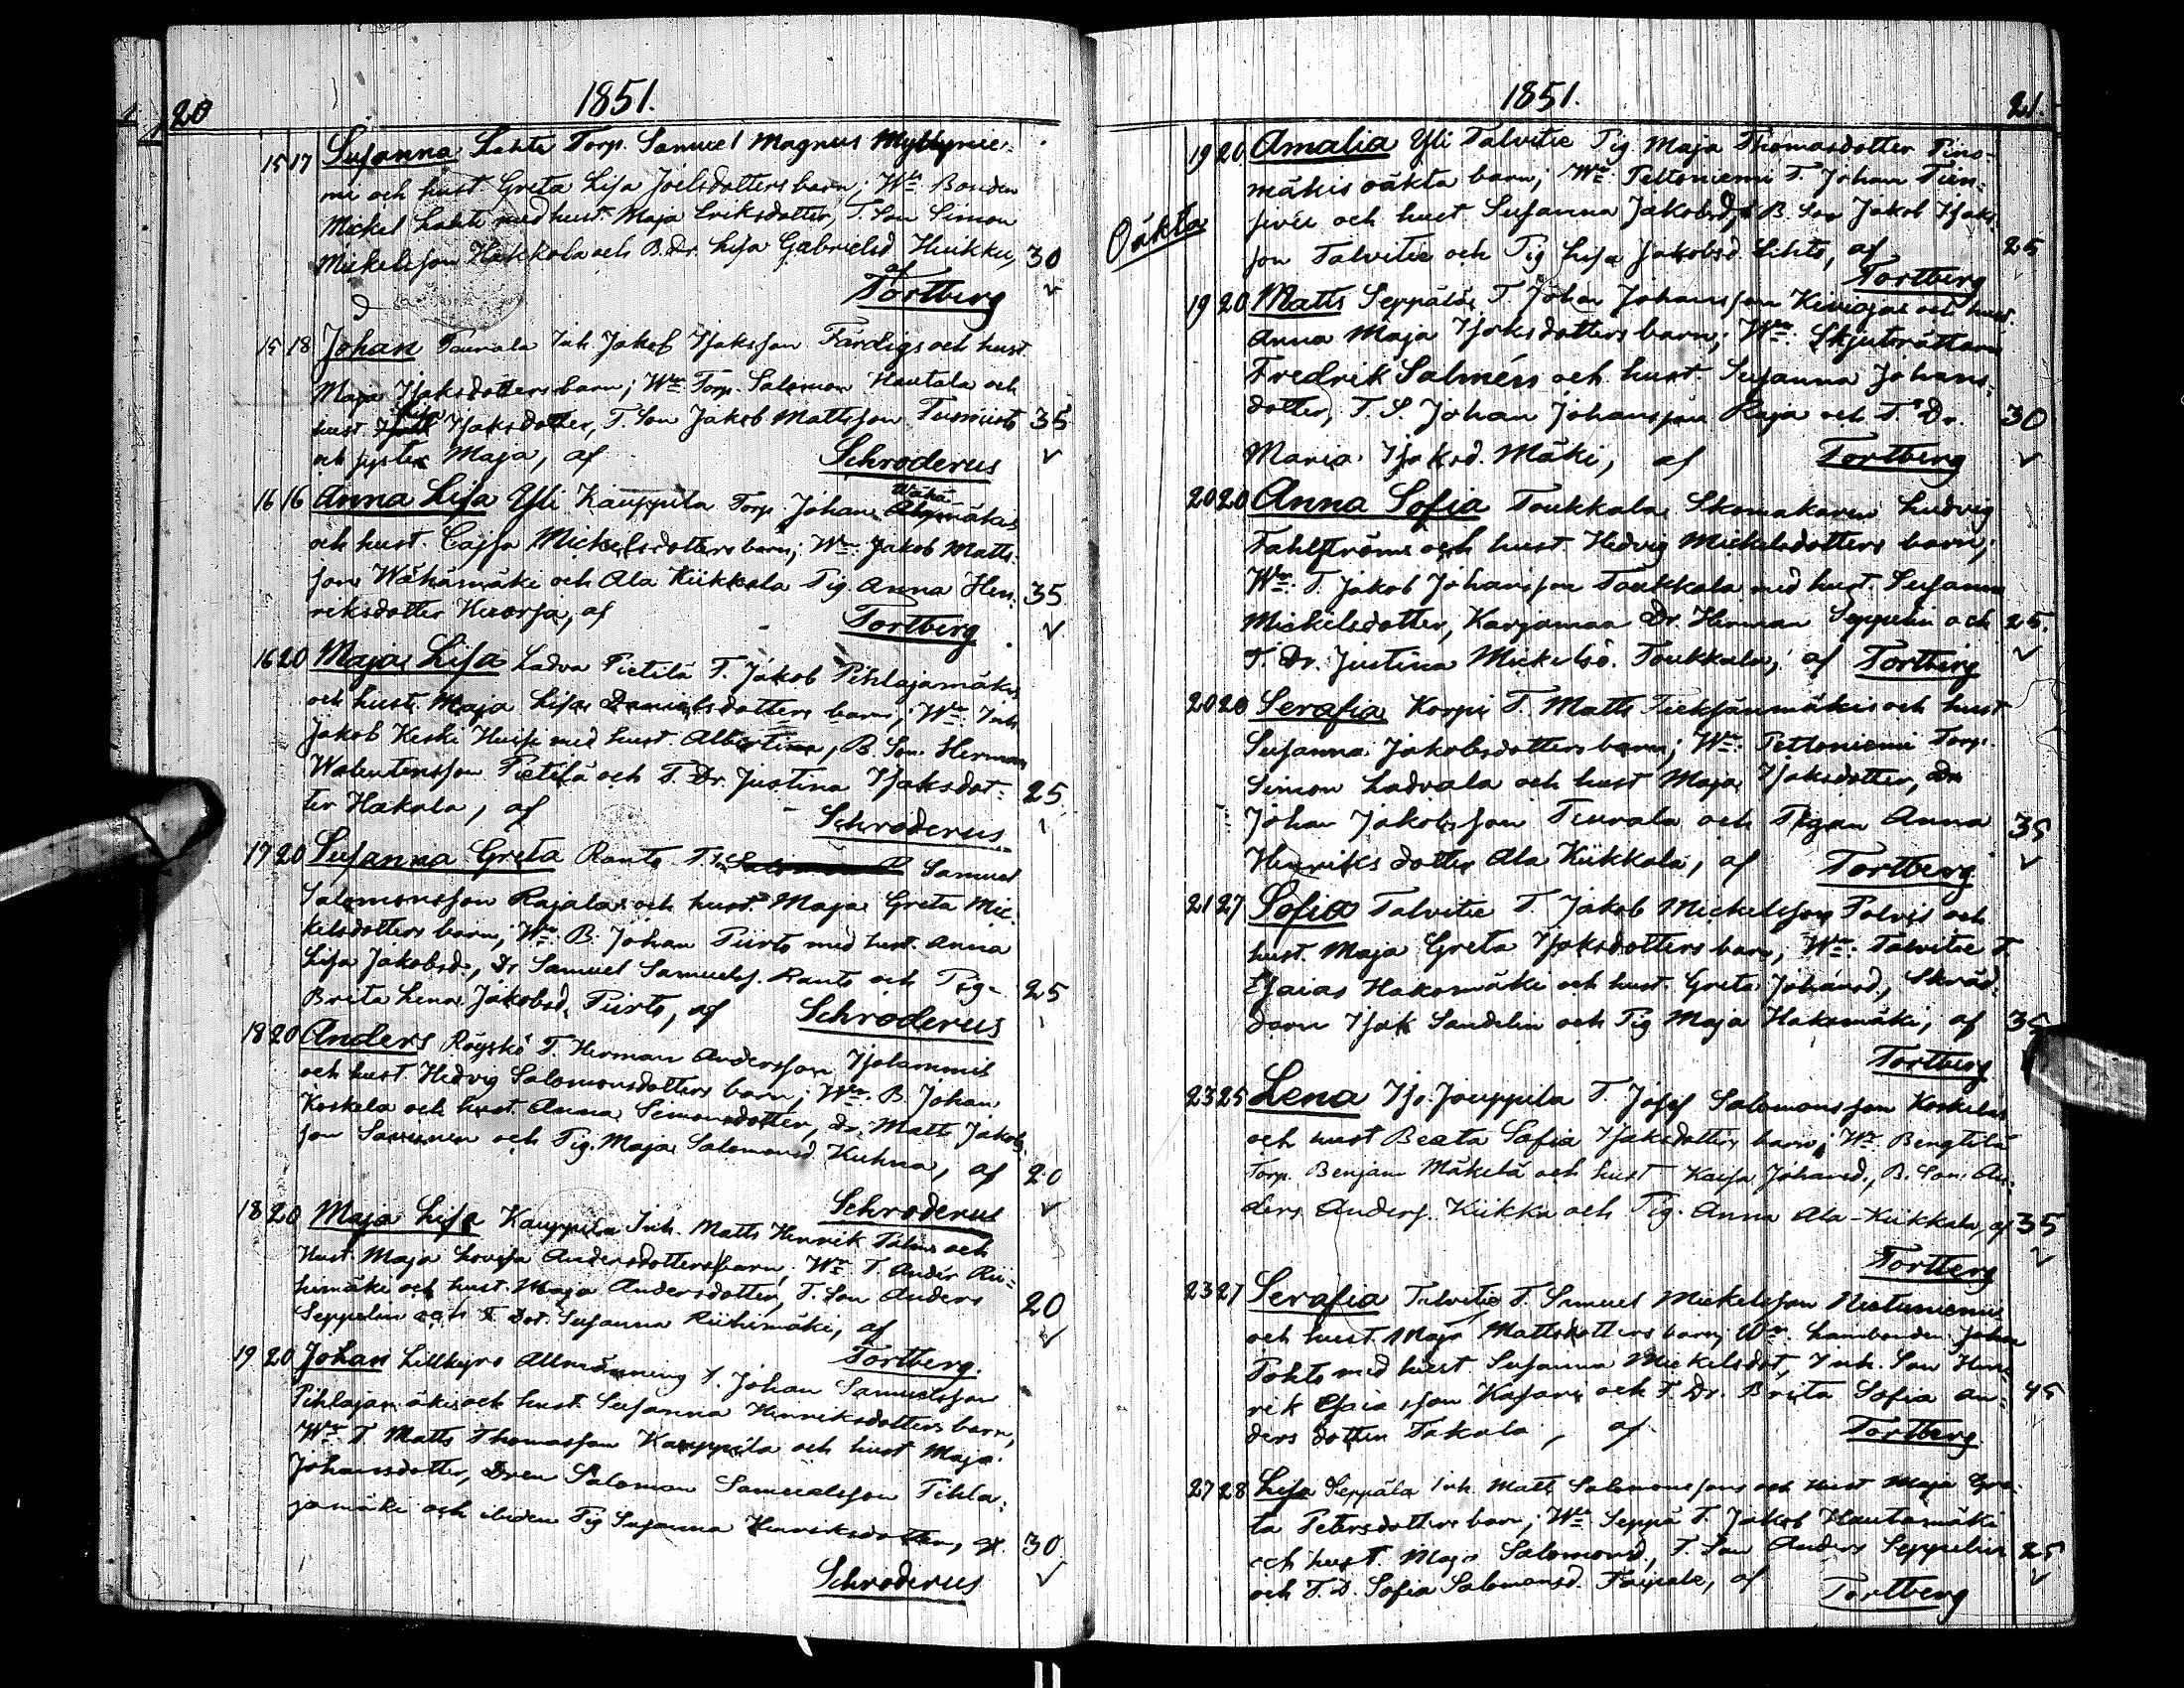 20
1851.
15 17 Susanna Lehto Torp. Samuel Magnus Myllynie-
mi och hust. Greta Lisa Joelsdotters barn; Wn: Bonden
Mickel Lahti med hust. Maja Eriksdotter, T. Son Simon
Mickelsson Hakkola och B.Dr. Lisa Gabrielsd Huikku, 30
af
Tortberg
15 18 Johan Taurala Inh. Jakob Isaksson Färdigs och hust.
Maja Isaksdotters barn; Wn: Torp. Salomon Hautala och
hust. Lisa Isaksdotter, T. Son Jakob Mattsson Tuomisto 35
och syster Maja, af Schroderus
16 16 Anna Lisa Yli Kauppila Torp. Johan Wähämäkis
och hust. Cajsa Mickelsdotters barn; Wn: Jakob Matts-
son Wähämäki och Ala Kiikkala Pig. Anna Hen- 35
riksdotter Kuorsa, af Tortberg
16 20 Maja Lisa Ladva Pietilä T. Jakob Pihlajamäkis
och hust. Maja Lisa Danielsdotters barn; Wn: Inh.
Jakob Keski Huisi med hust. Albertina, B. Son Herman
Walentinsson Pietilä och T. Dr. Justina Isaksdot- 25
ter Hakala, af Schroderus
17 20 Susanna Greta Ranto T. Samuel
Salomonsson Rajalas och hust. Maja Greta Mic-
kelsdotters barn; Wn: B. Johan Piirto med hust. Anna
Lisa Jakobsd., Dr. Samuel Samuelss. Ranto och Pig. 25
Brita Lena Jakobsd. Piirto, af Schroderus
18 20 Anders Röyskö T. Herman Andersson Isolammis
och hust. Hedvig Salomonsdotters barn; Wn: B. Johan
Koskela och hust. Anna Simonsdotter, Dr. Matts Jakobs-
son Savinen och Pig. Maja Salomonsd Kuhna, af 20
Schroderus
18 20 Maja Lisa Kauppila Inh. Matts Henrik Palms och
Hust. Maja Lovisa Andersdotters barn; Wn: T. Anders Rii-
himäki och hust. Maja Andersdotter, T. Son Anders 20
Seppelin och T. Dot. Susanna Riihimäki, af
Tortberg.
19 20 Johan Lillkyro Allmänning T. Johan Samuelsson
Pihlajamäkis och hust. Susanna Henriksdotters barn,
Wn: T. Matts Thomasson Kauppila och hust Maja
Johansdotter, Dren Salomon Samuelsson Pihla-
jamäki och ibiden Pig Susanna Henriksdotter, af. 30
Schroderus
1851.
21.
19 20 Amalia Yli Talvitie Pig. Maja Thomasdotter Pino-
Oäkta
mäkis oäkta barn; Wn: Peltoniemi T. Johan
och hust Susanna Jakobsd, B. Son Jakob Isaks-
son Talvitie och Pig Lisa Jakobsd. Lihto, af 25
Tortberg
19 20 Matts Seppälä T. Johan Johansson Kiviojas och hust.
Anna Maja Isaksdotters barn; Wn: Skjutsrättaren
Fredrik Salmén och hust. Susanna Johans-
dotter, T. S. Johan Johansson Raja och T. Dr. 30
Maria Isaksd. Mäki, af Tortberg
20 20 Anna Sofia Toukkala Skomakaren Ludvig
Fahlströms och hust Hedvig Mickelsdotters barn;
Wn: T. Jakob Johansson Toukkala med hust. Susanna
Mickelsdotter, Karjamaa Dr. Herman Seppelin och 25.
T. Dr. Justina Mickelsd. Toukkala, af Tortberg
20 20 Serafia Korpi T. Matts Tieksänmäkis och hust
Susanna Jakobsdotters barn; Wn: Peltoniemi Torp.
Simon Ladvala och hust Maja Isaksdotter, Dr
Johan Jakobsson Taurala och Pigan Anna 35
Henriksdotter Ala Kiikkala, af Tortberg
21 27 Sofia Talvitie T. Jakob Mickelsson Polvis och
hust. Maja Greta Isaksdotters barn; Wn: Talvitie T.
Esaias Hakomäki och hust. Greta Johansd., Skräd-
darn Isak Sandelin och Pig Maja Hakomäki, af 35
Tortberg
23 25 Lena Iso-Jouppila T. Josef Salomonsson Koskelas
och hust Beata Sofia Isaksdotters barn; Wn: Bengtilä
Torp. Benjam Mäkelä och hust Kaisa Johansd., B. Son An-
ders Anderss. Kiikka och Pig. Anna Ala-Kiikkala, af 35
Tortberg
23 27 Serafia Talvitie T. Samuel Mickelsson Nietuniemis
och hust. Maja Mattsdotters barn; Wn: Lambonden Johan
Pohto med hust Susanna Mickelsdot, Inh. Son Hen-
rik Esaiasson Kasari och T. Dr. Brita Sofia An- 45
dersdotter Takala, af Tortberg
27 28 Lisa Seppälä Inh. Matts Salomonssons och Hust Maja Gre-
ta Petersdotters barn; Wn: Seppä T. Jakob Hautamäki
och hust. Maja Salomonsd., T. Son Anders Seppelin 25
och T. D. Sofia Salomonsd. Taipale, af Tortberg